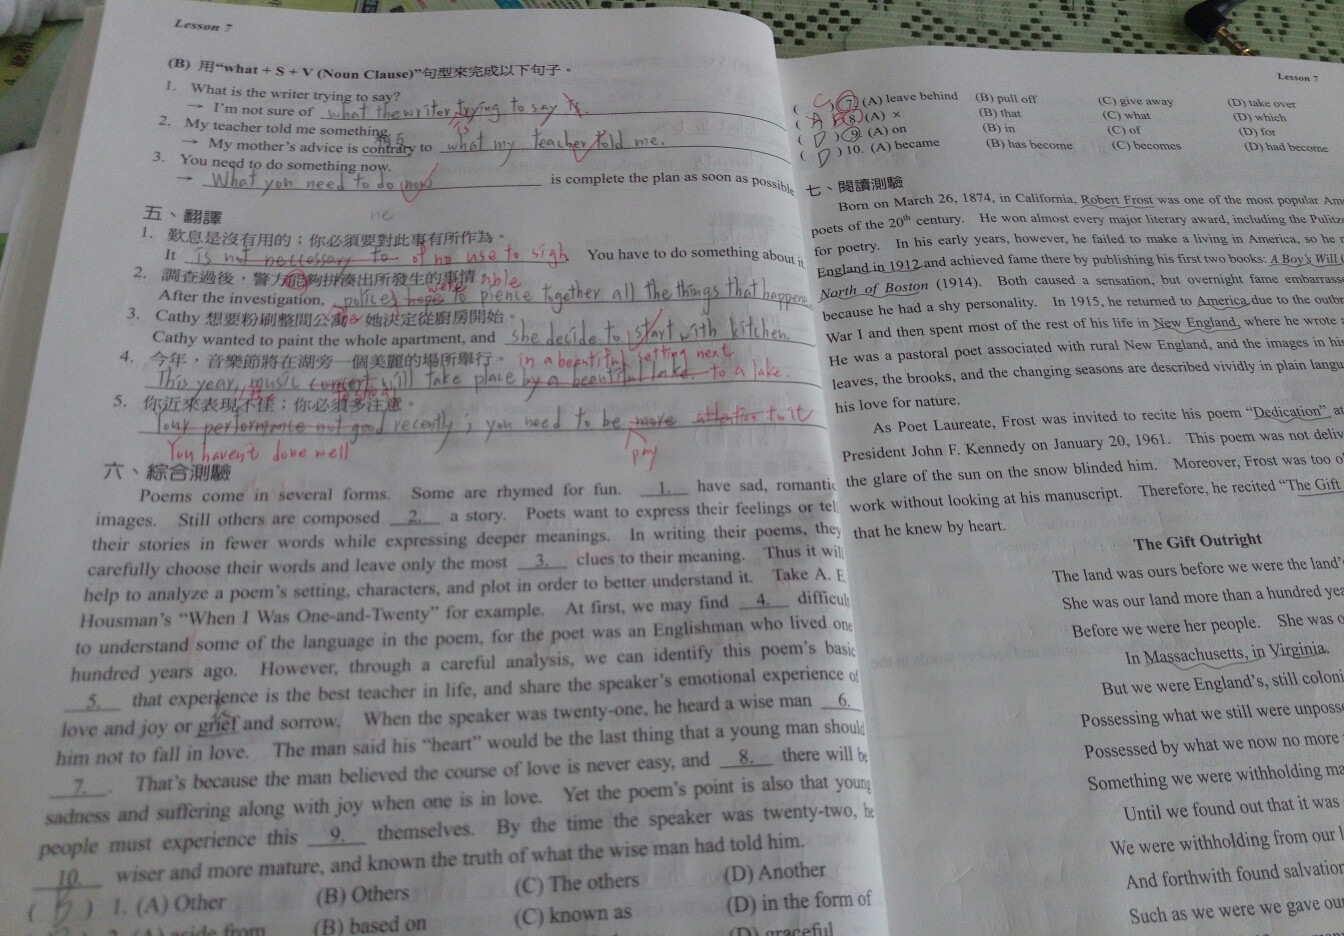 Lesson 7
(B) 用“what + S + V (Noun Clause)”句型來完成以下句子。
1. What is the writer trying to say?
→ I'm not sure of what the writer trying to say is.
2. My teacher told me something.
→ My mother's advice is contrary to what my teacher told me.
3. You need to do something now.
→ What you need to do now is complete the plan as soon as possible
五、翻譯
1. 歎息是沒有用的；你必須要對此事有所作為。
It is not neccessary to of no use to sigh You have to do something about it.
2. 調查過後，警方能夠拼湊出所發生的事情 able
After the investigation, polices hope to pience together all the things that happene
3. Cathy 想要粉刷整間公寓，她決定從廚房開始。
Cathy wanted to paint the whole apartment, and she decide to start with kitchen.
4. 今年，音樂節將在湖旁一個美麗的場所舉行。 in a beautiful setting next
This year, music concert will take place by a beautiful lake. to a lake.
5. 你近來表現不佳；你必須多注意。
Your performance not good recently, you need to be more attention to it
You haven't done well
pay
六、綜合測驗
Poems come in several forms. Some are rhymed for fun. 1. have sad, romantic
images. Still others are composed 2. a story. Poets want to express their feelings or tell
their stories in fewer words while expressing deeper meanings. In writing their poems, they
carefully choose their words and leave only the most 3. clues to their meaning. Thus it will
help to analyze a poem's setting, characters, and plot in order to better understand it. Take A. E.
Housman's “When I Was One-and-Twenty” for example. At first, we may find 4. difficult
to understand some of the language in the poem, for the poet was an Englishman who lived one
hundred years ago. However, through a careful analysis, we can identify this poem's basic
5. that experience is the best teacher in life, and share the speaker's emotional experience of
love and joy or grief and sorrow. When the speaker was twenty-one, he heard a wise man 6.
him not to fall in love. The man said his “heart” would be the last thing that a young man should
7. . That's because the man believed the course of love is never easy, and 8. there will be
sadness and suffering along with joy when one is in love. Yet the poem's point is also that young
people must experience this 9. themselves. By the time the speaker was twenty-two, he
10. wiser and more mature, and known the truth of what the wise man had told him.
( B ) 1. (A) Other (B) Others (C) The others (D) Another
(A) aside from (B) based on (C) known as (D) in the form of
(D) graceful
Lesson 7
( C ) 7. (A) leave behind (B) pull off (C) give away (D) take over
( A ) 8. (A) × (B) that (C) what (D) which
( D ) 9. (A) on (B) in (C) of (D) for
( D ) 10. (A) became (B) has become (C) becomes (D) had become
七、閱讀測驗
Born on March 26, 1874, in California, Robert Frost was one of the most popular Ame
poets of the 20th century. He won almost every major literary award, including the Pulitze
for poetry. In his early years, however, he failed to make a living in America, so he
England in 1912 and achieved fame there by publishing his first two books: A Boy's Will
North of Boston (1914). Both caused a sensation, but overnight fame embarrasse
because he had a shy personality. In 1915, he returned to America due to the outbr
War I and then spent most of the rest of his life in New England, where he wrote
He was a pastoral poet associated with rural New England, and the images in his
leaves, the brooks, and the changing seasons are described vividly in plain langu
his love for nature.
As Poet Laureate, Frost was invited to recite his poem “Dedication” at
President John F. Kennedy on January 20, 1961. This poem was not deliv
the glare of the sun on the snow blinded him. Moreover, Frost was too o
work without looking at his manuscript. Therefore, he recited “The Gift
that he knew by heart.
The Gift Outright
The land was ours before we were the land'
She was our land more than a hundred yea
Before we were her people. She was o
In Massachusetts, in Virginia.
But we were England's, still coloni
Possessing what we still were unposse
Possessed by what we now no more
Something we were withholding ma
Until we found out that it was
We were withholding from our l
And forthwith found salvation
Such as we were we gave our